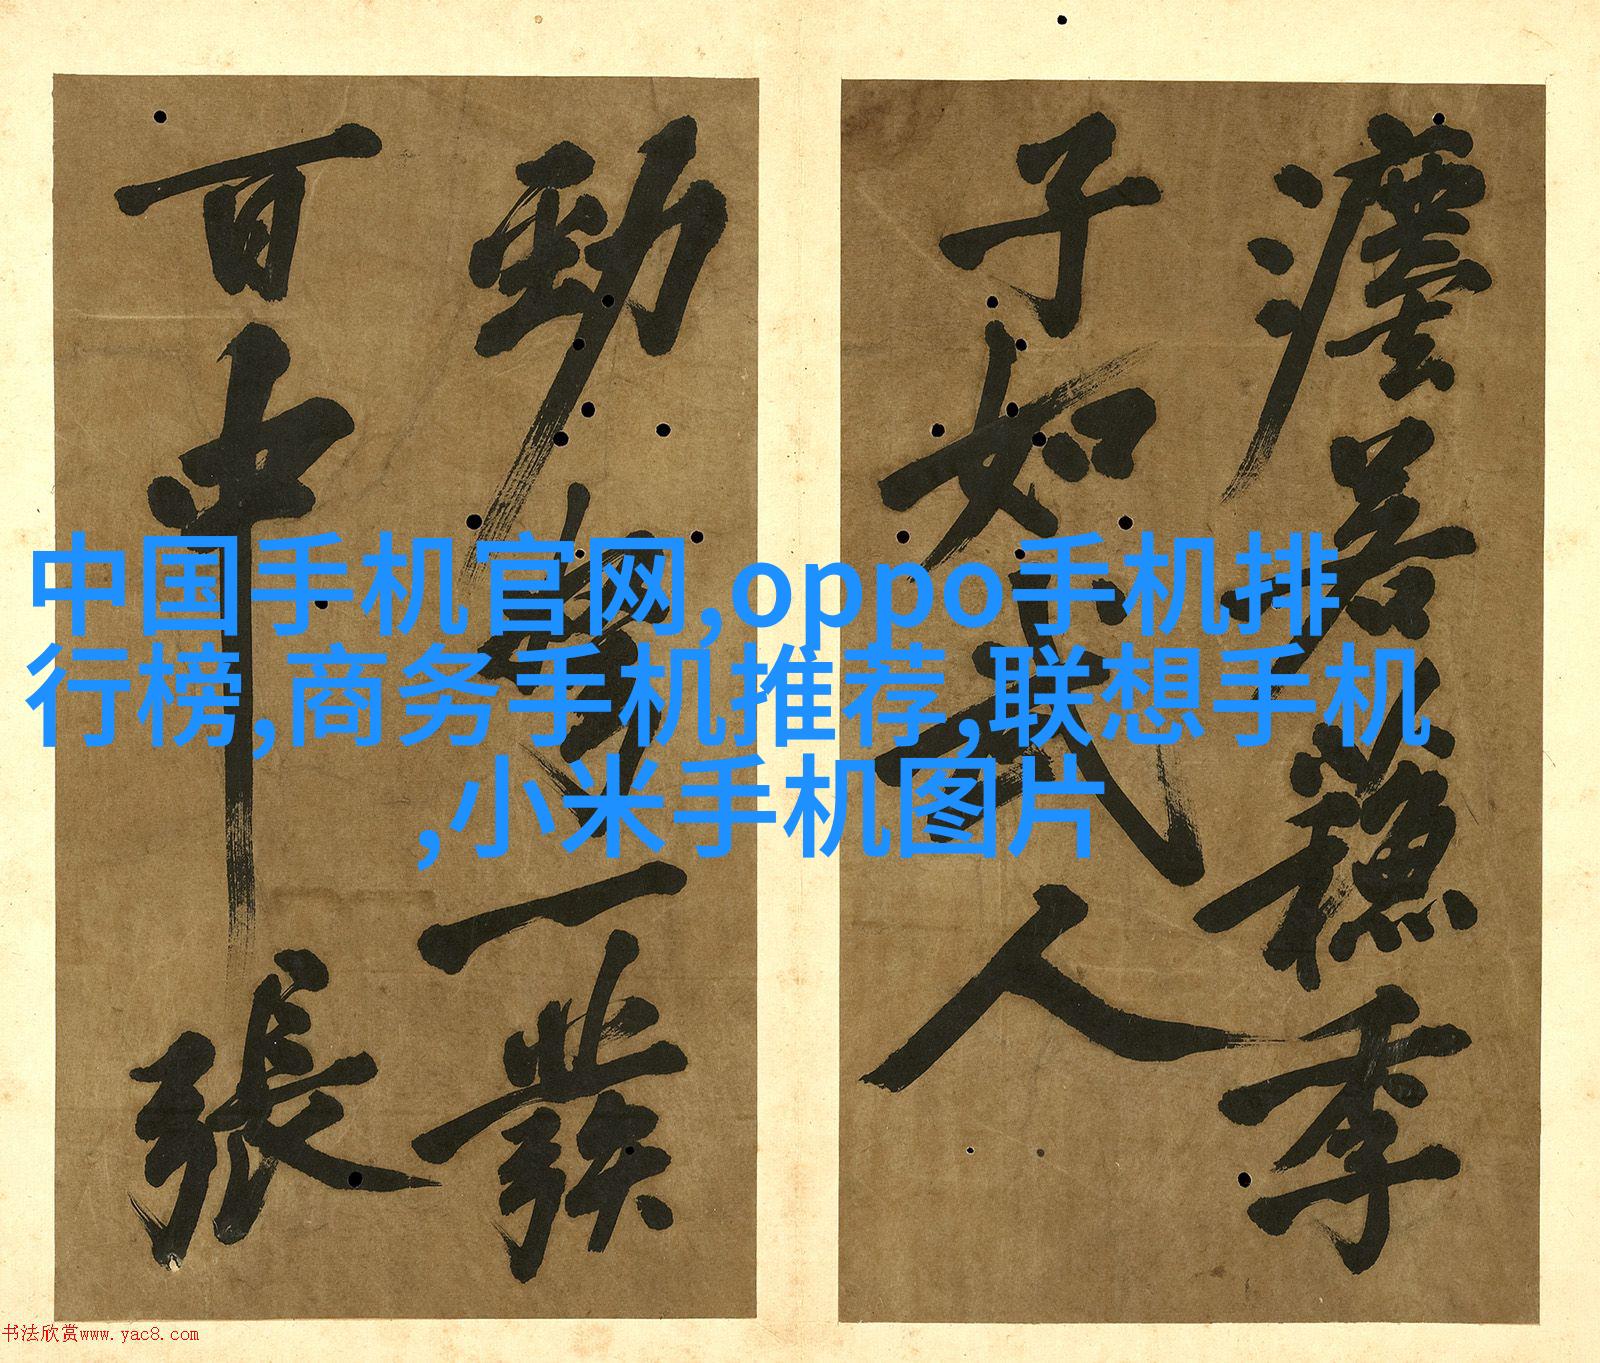 中国手机官网,oppo手机排
行榜,商务手机推荐,联想手机
,小米手机图片
季
子如式人
勁一發
百中張
书法欣赏www.yac8.com